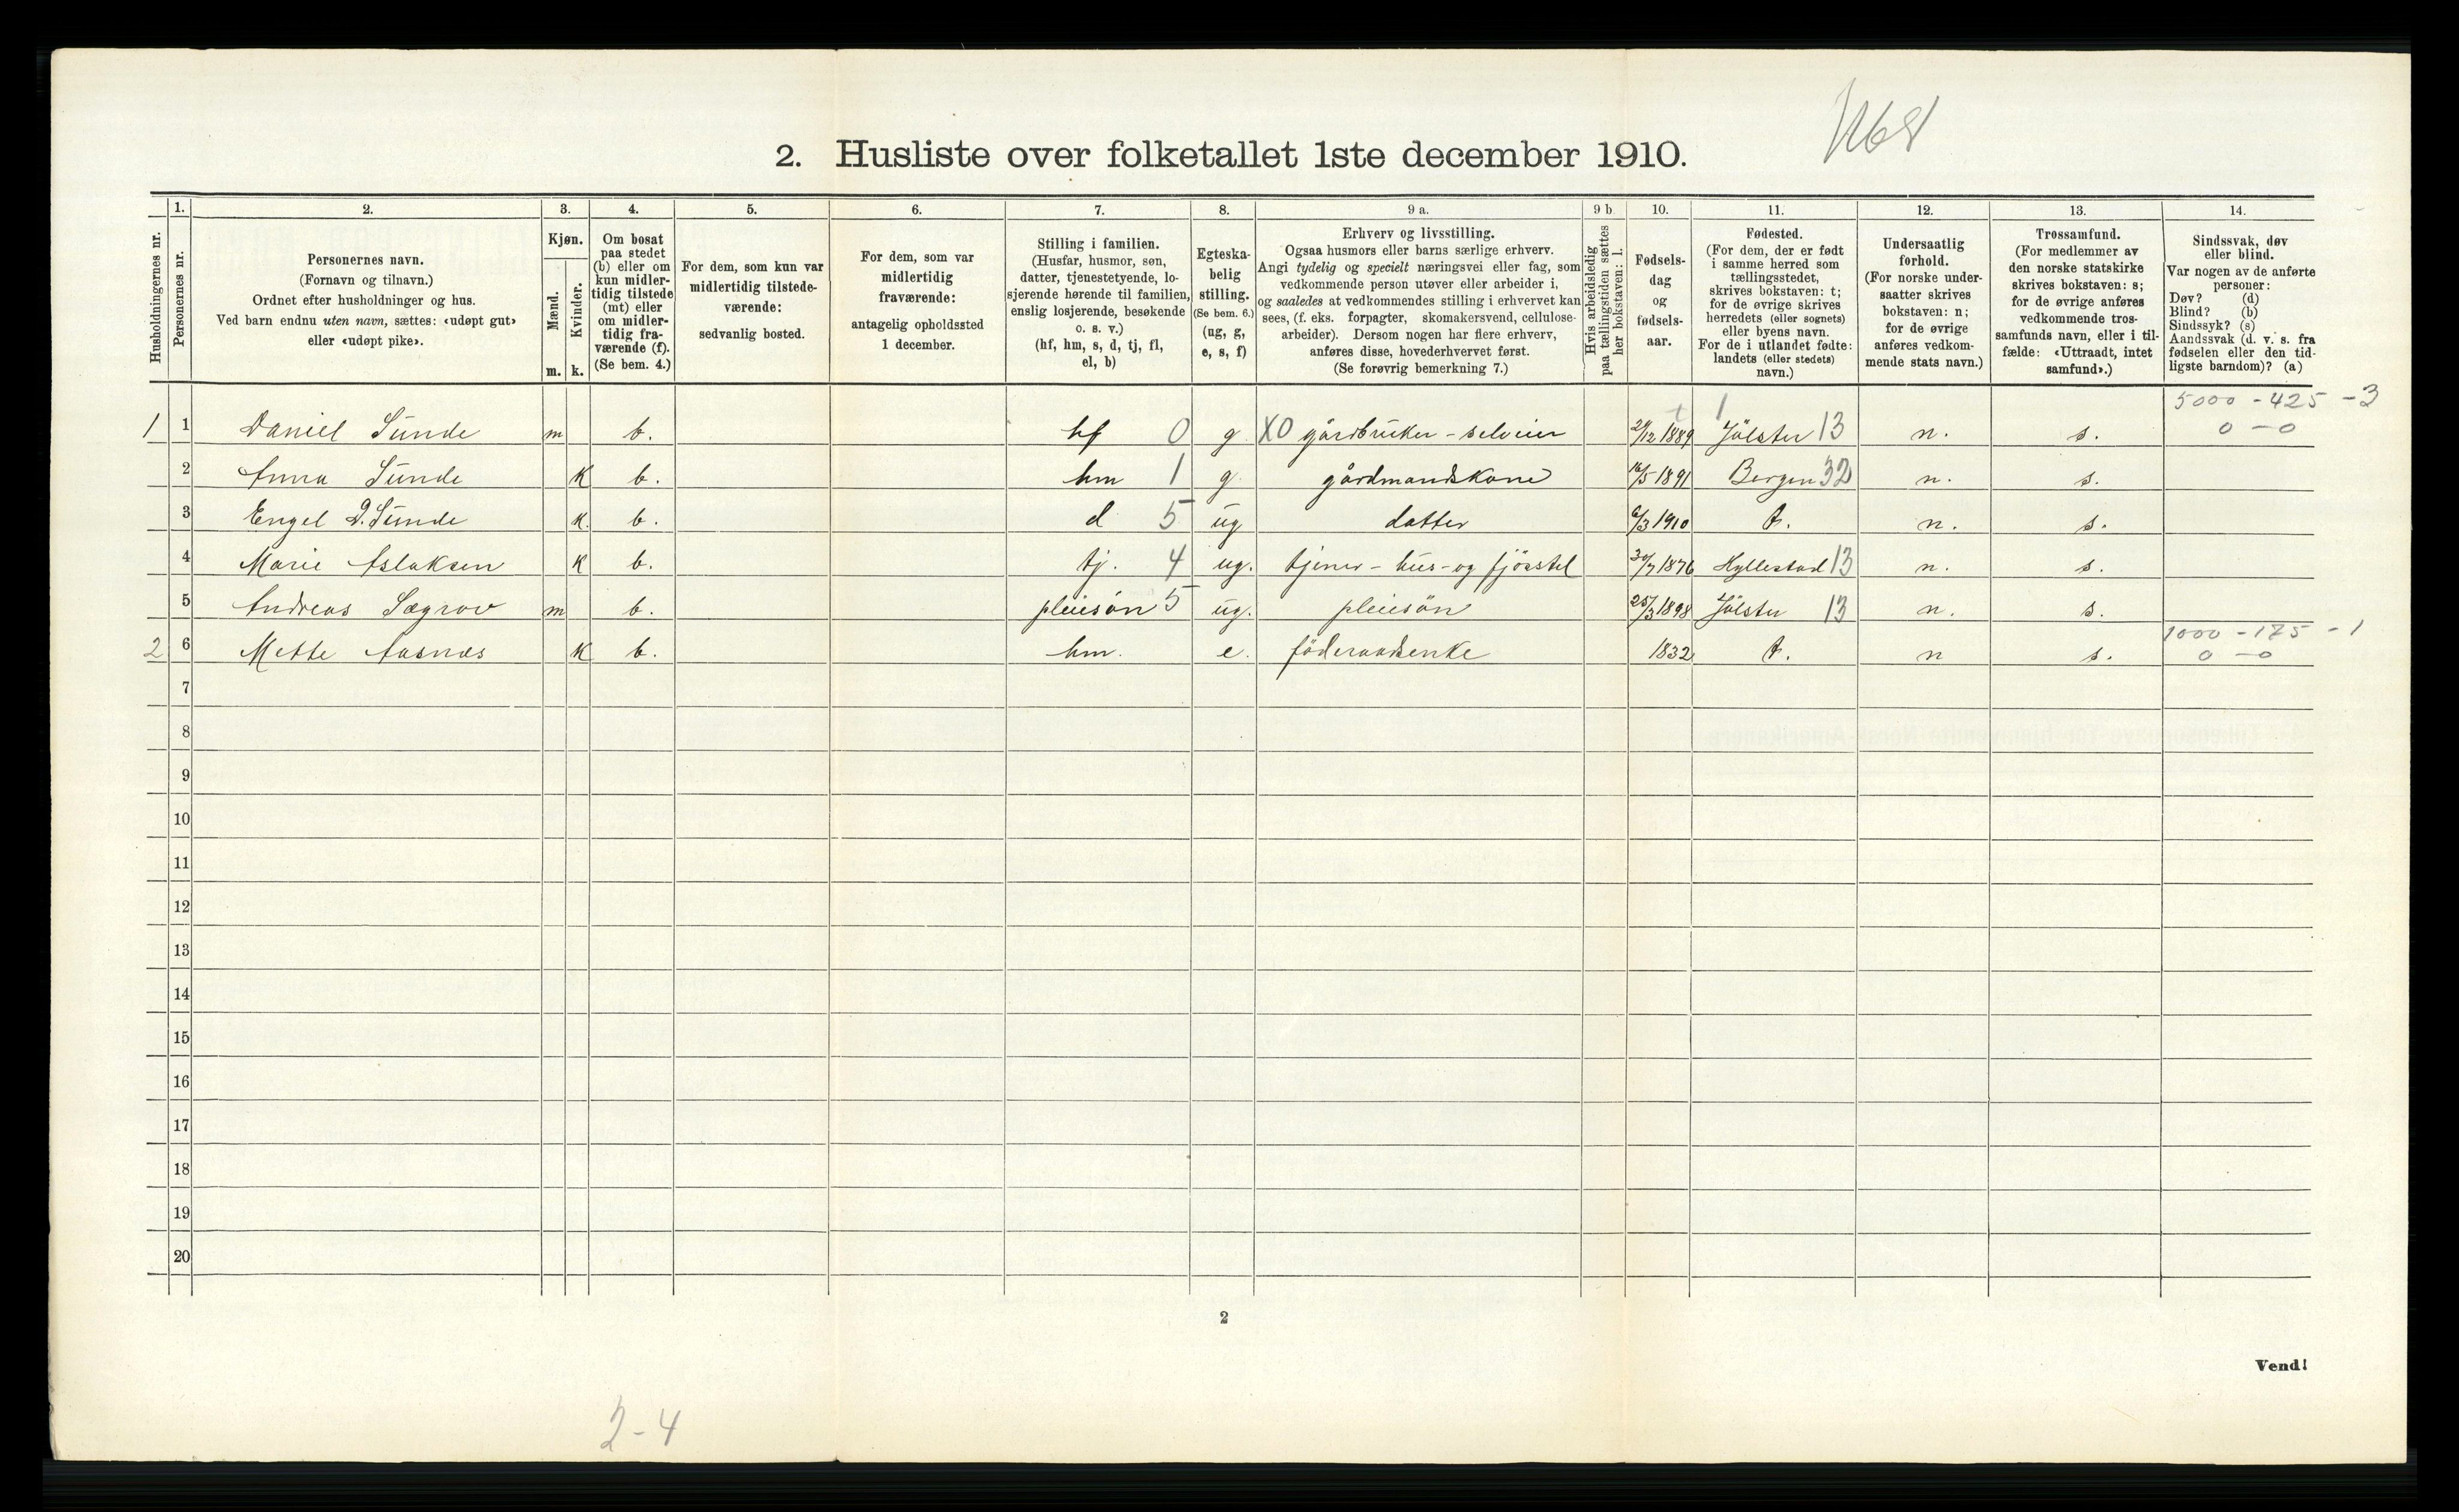 2. Husliste over folketallet 1ste december 1910.
1. 2. 3. 4. 5. 6. 7. 8. 9 a. 9 b 10. 11. 12. 13. 14.
Husholdningernes nr.
Personernes nr.
Personernes navn.
(Fornavn og tilnavn.)
Ordnet efter husholdninger og hus.
Ved barn endnu uten navn, sættes: «udøpt gut»
eller «udøpt pike».
Kjøn.
Mænd.
Kvinder.
m. k.
Om bosat
paa stedet
(b) eller om
kun midler-
tidig tilstede
(mt) eller
om midler-
tidig fra-
værende (f).
(Se bem. 4.)
For dem, som kun var
midlertidig tilstede-
værende:
sedvanlig bosted.
For dem, som var
midlertidig
fraværende:
antagelig opholdssted
1 december.
Stilling i familien.
(Husfar, husmor, søn,
datter, tjenestetyende, lo-
sjerende hørende til familien,
enslig losjerende, besøkende
o. s. v.)
(hf, hm, s, d, tj, fl,
el, b)
Egteska-
belig
stilling.
(Se bem. 6.)
(ug, g,
e, s, f)
Erhverv og livsstilling.
Ogsaa husmors eller barns særlige erhverv.
Angi tydelig og specielt næringsvei eller fag, som
vedkommende person utøver eller arbeider i,
og saaledes at vedkommendes stilling i erhvervet kan
sees, (f. eks. forpagter, skomakersvend, cellulose-
arbeider). Dersom nogen har flere erhverv,
anføres disse, hovederhvervet først.
(Se forøvrig bemerkning 7.)
Hvis arbeidsledig
paa tællingstiden sættes
her bokstaven: l.
Fødsels-
dag
og
fødsels-
aar.
Fødested.
(For dem, der er født
i samme herred som
tællingsstedet,
skrives bokstaven: t;
for de øvrige skrives
herredets (eller sognets)
eller byens navn.
For de i utlandet fødte:
landets (eller stedets)
navn.)
Undersaatlig
forhold.
(For norske under-
saatter skrives
bokstaven: n;
for de øvrige
anføres vedkom-
mende stats navn.)
Trossamfund.
(For medlemmer av
den norske statskirke
skrives bokstaven: s;
for de øvrige anføres
vedkommende tros-
samfunds navn, eller i til-
fælde: «Uttraadt, intet
samfund».)
Sindssvak, døv
eller blind.
Var nogen av de anførte
personer:
Døv? (d)
Blind? (b)
Sindssyk? (s)
Aandssvak (d. v. s. fra
fødselen eller den tid-
ligste barndom)? (a)
t 1 5000 - 425 - 3
1 1 Daniel Sunde m b. hf 0 g XO gårdbruker - selveier 1889 Jölster 13 n. s. 0 - 0
2 Anna Sunde K b. hm 1 g gårdmandskone 16/5 1891 Bergen 32 n. s.
3 Engel D. Sunde K. b. d 5 ug datter 6/3 1910 t. n. s.
4 Marie Aslaksen K b. tj. 4 ug. tjener - hus- og fjösstel 30/7 1876 Hyllestad 13 n. s.
5 Andreas Sægrov m b. pleiesön 5 ug. pleiesön 25/3 1898 Jölster 13 n. s.
1000 - 175 - 1
2 6 Mette Aasnæs K b. hm. e. föderaadsenke 1832 t. n s. 0 - 0
7
8
9
10
11
12
13
14
15
16
17
18
19
20
2
Vend!
2-4